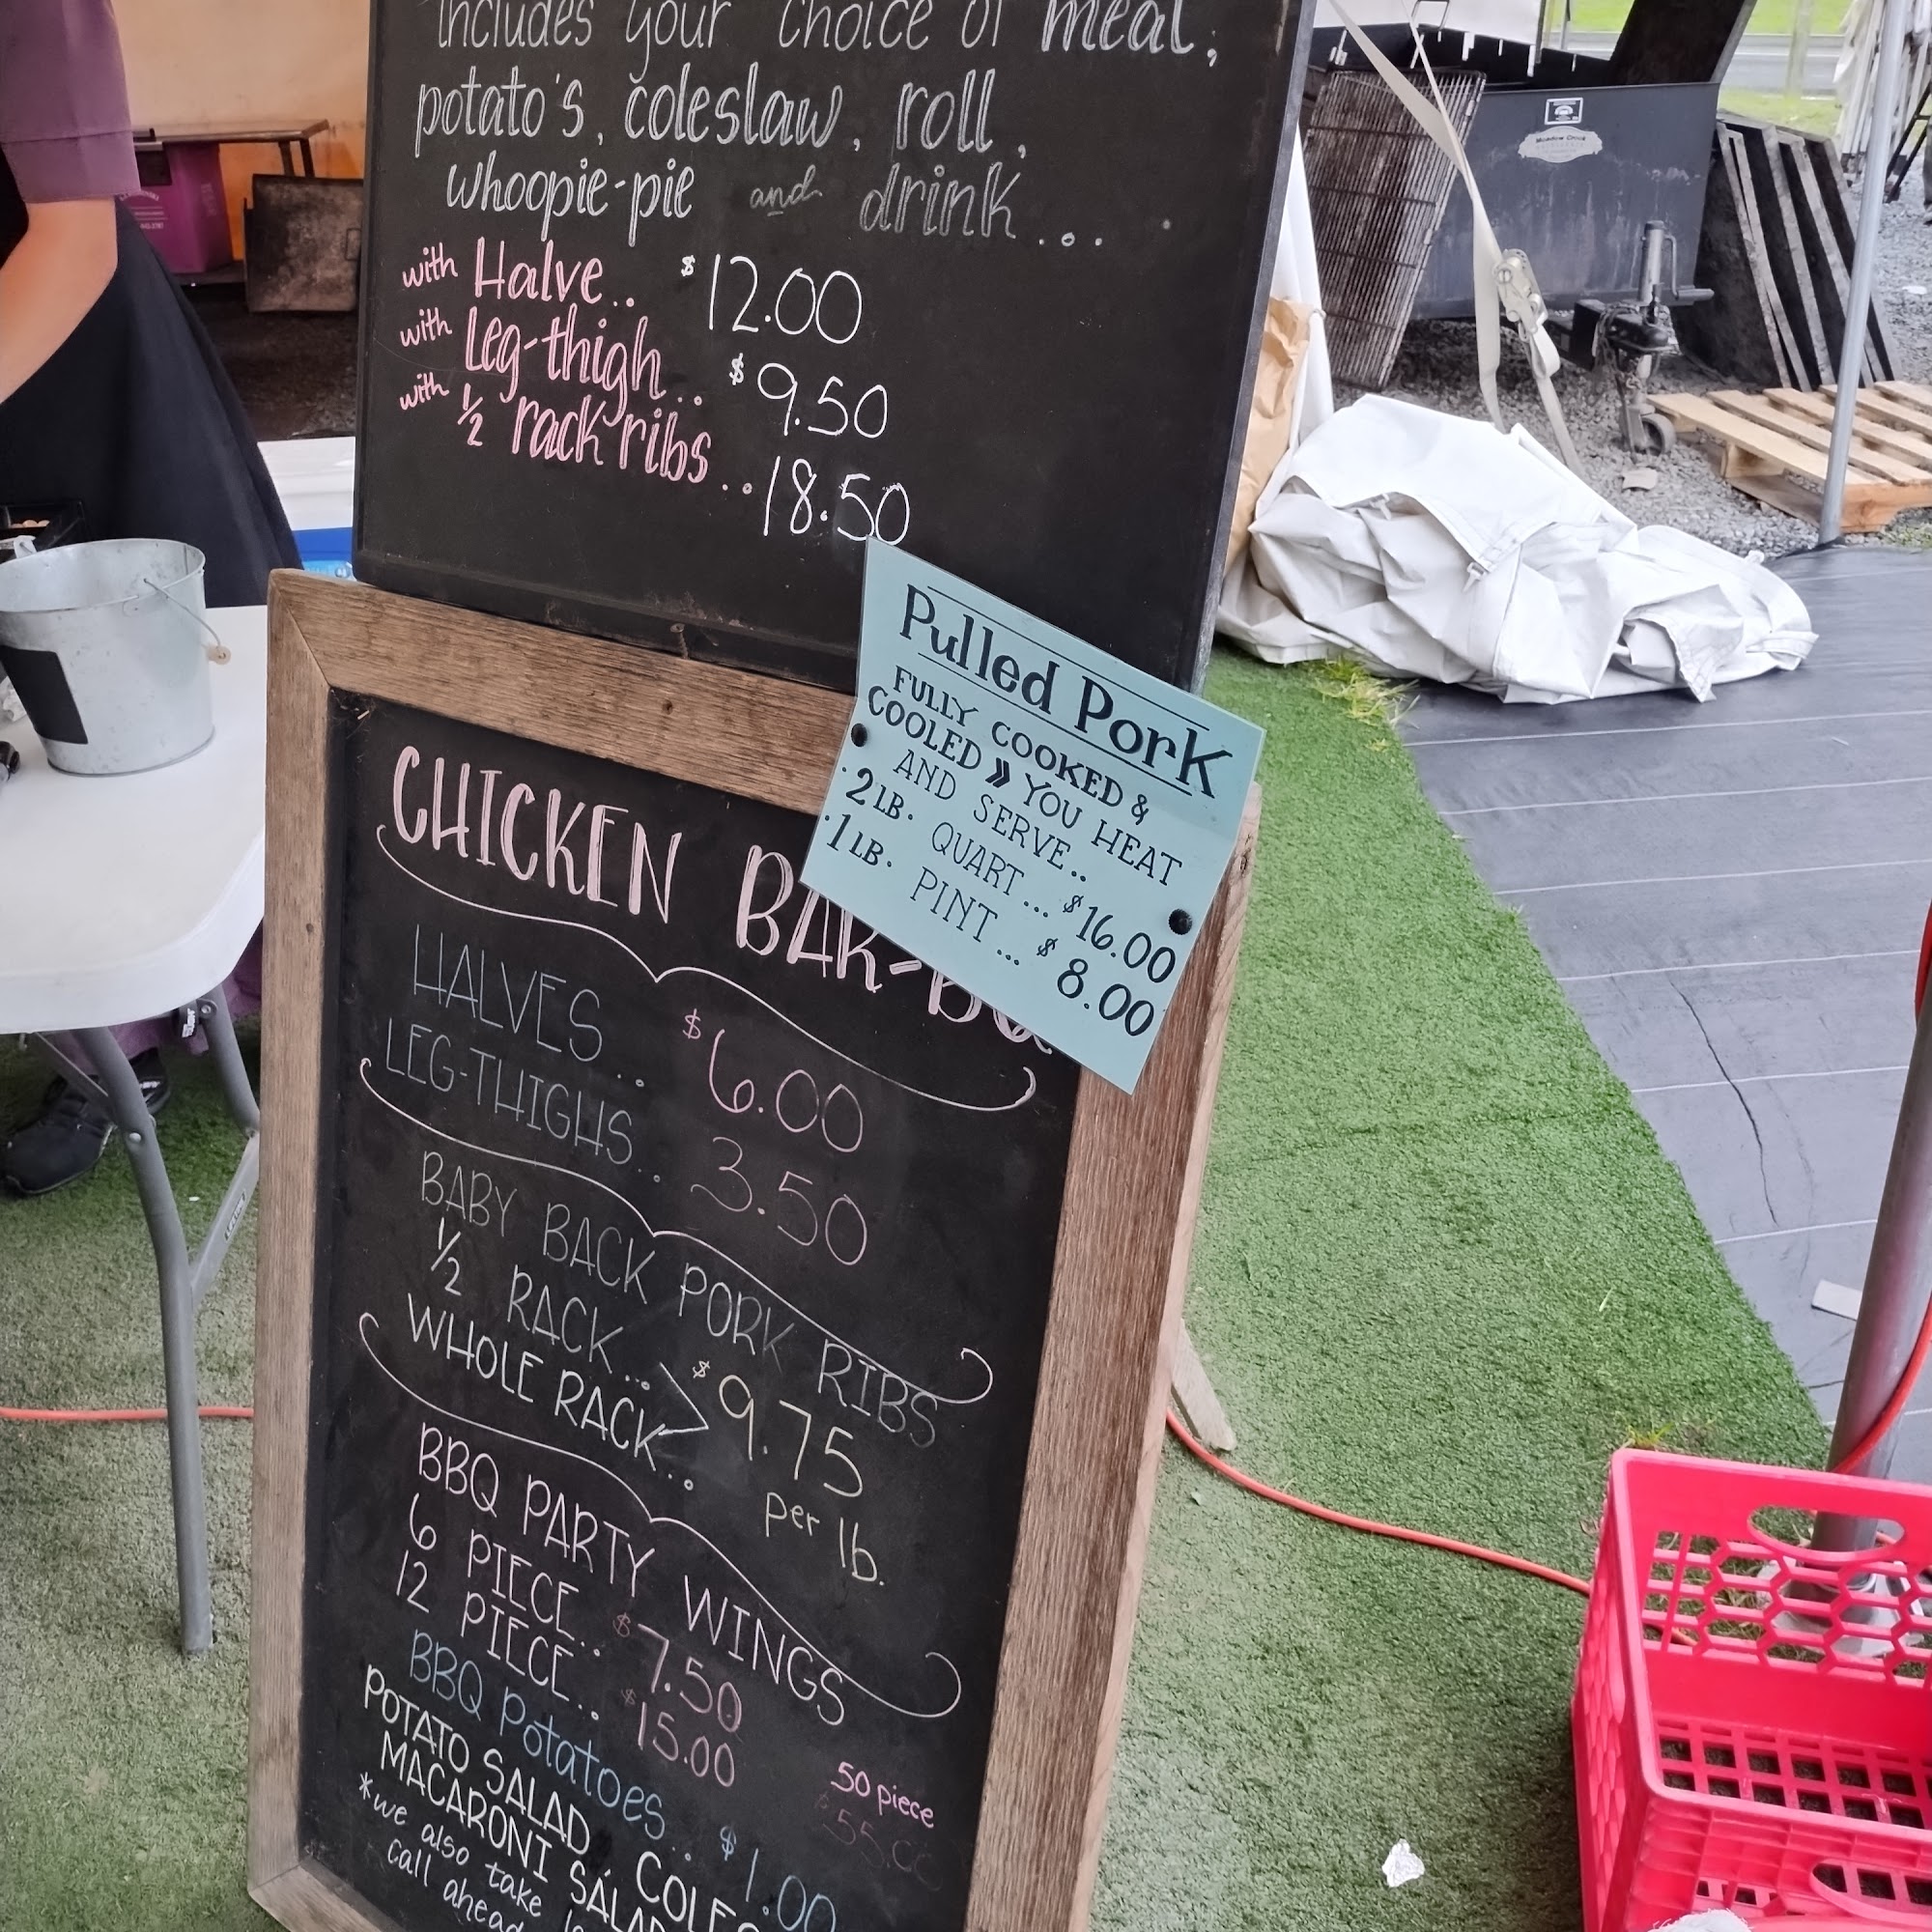 includes your choice of meal,
potato's, coleslaw, roll,
whoopie-pie and drink...
with Halve.. $12.00
with Leg-thigh.. $9.50
with 1/2 rack ribs.. 18.50
Pulled Pork
FULLY COOKED &
COOLED » YOU HEAT
AND SERVE..
· 2 LB. QUART ... $16.00
· 1 LB. PINT ... $8.00
CHICKEN BAR-BQ
HALVES... $6.00
LEG-THIGHS.. 3.50
BABY BACK PORK RIBS
1/2 RACK ... > $9.75
WHOLE RACK..
per lb.
BBQ PARTY WINGS
6 PIECE.. $7.50
12 PIECE.. $15.00
50 piece
$55.00
BBQ Potatoes... $1.00
POTATO SALAD,
MACARONI
*we also take
call ahead